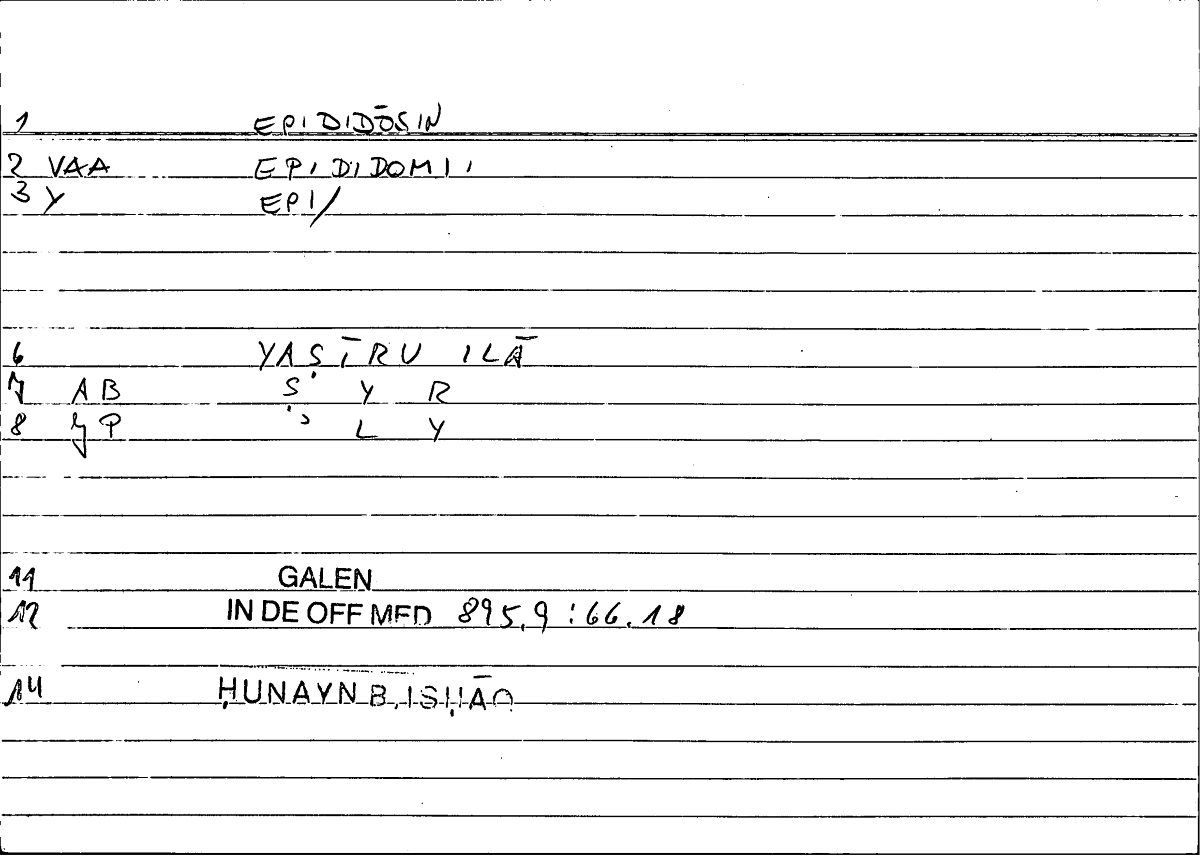 1 EPIDIDŌSIN
2 VAA EPIDIDOMI I
3 Y EPI/
6 YAṢĪRU ILĀ
7 AB Ṣ Y R
8 JP ʾ L Y
11 GALEN
12 IN DE OFF MED 895,9 : 66.18
14 ḤUNAYN B. ISḤĀQ